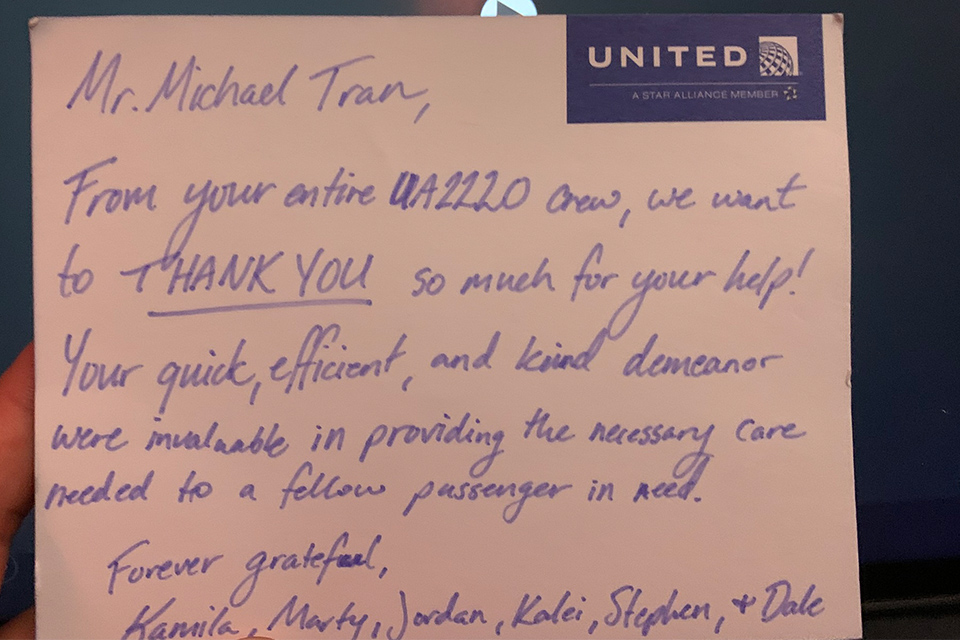 UNITED
A STAR ALLIANCE MEMBER
Mr. Michael Tran,
From your entire UA2220 crew, we want
to THANK YOU so much for your help!
Your quick, efficient, and kind demeanor
were invaluable in providing the necessary care
needed to a fellow passenger in need.
Forever grateful,
Kamila, Marty, Jordan, Kalei, Stephen, + Dale